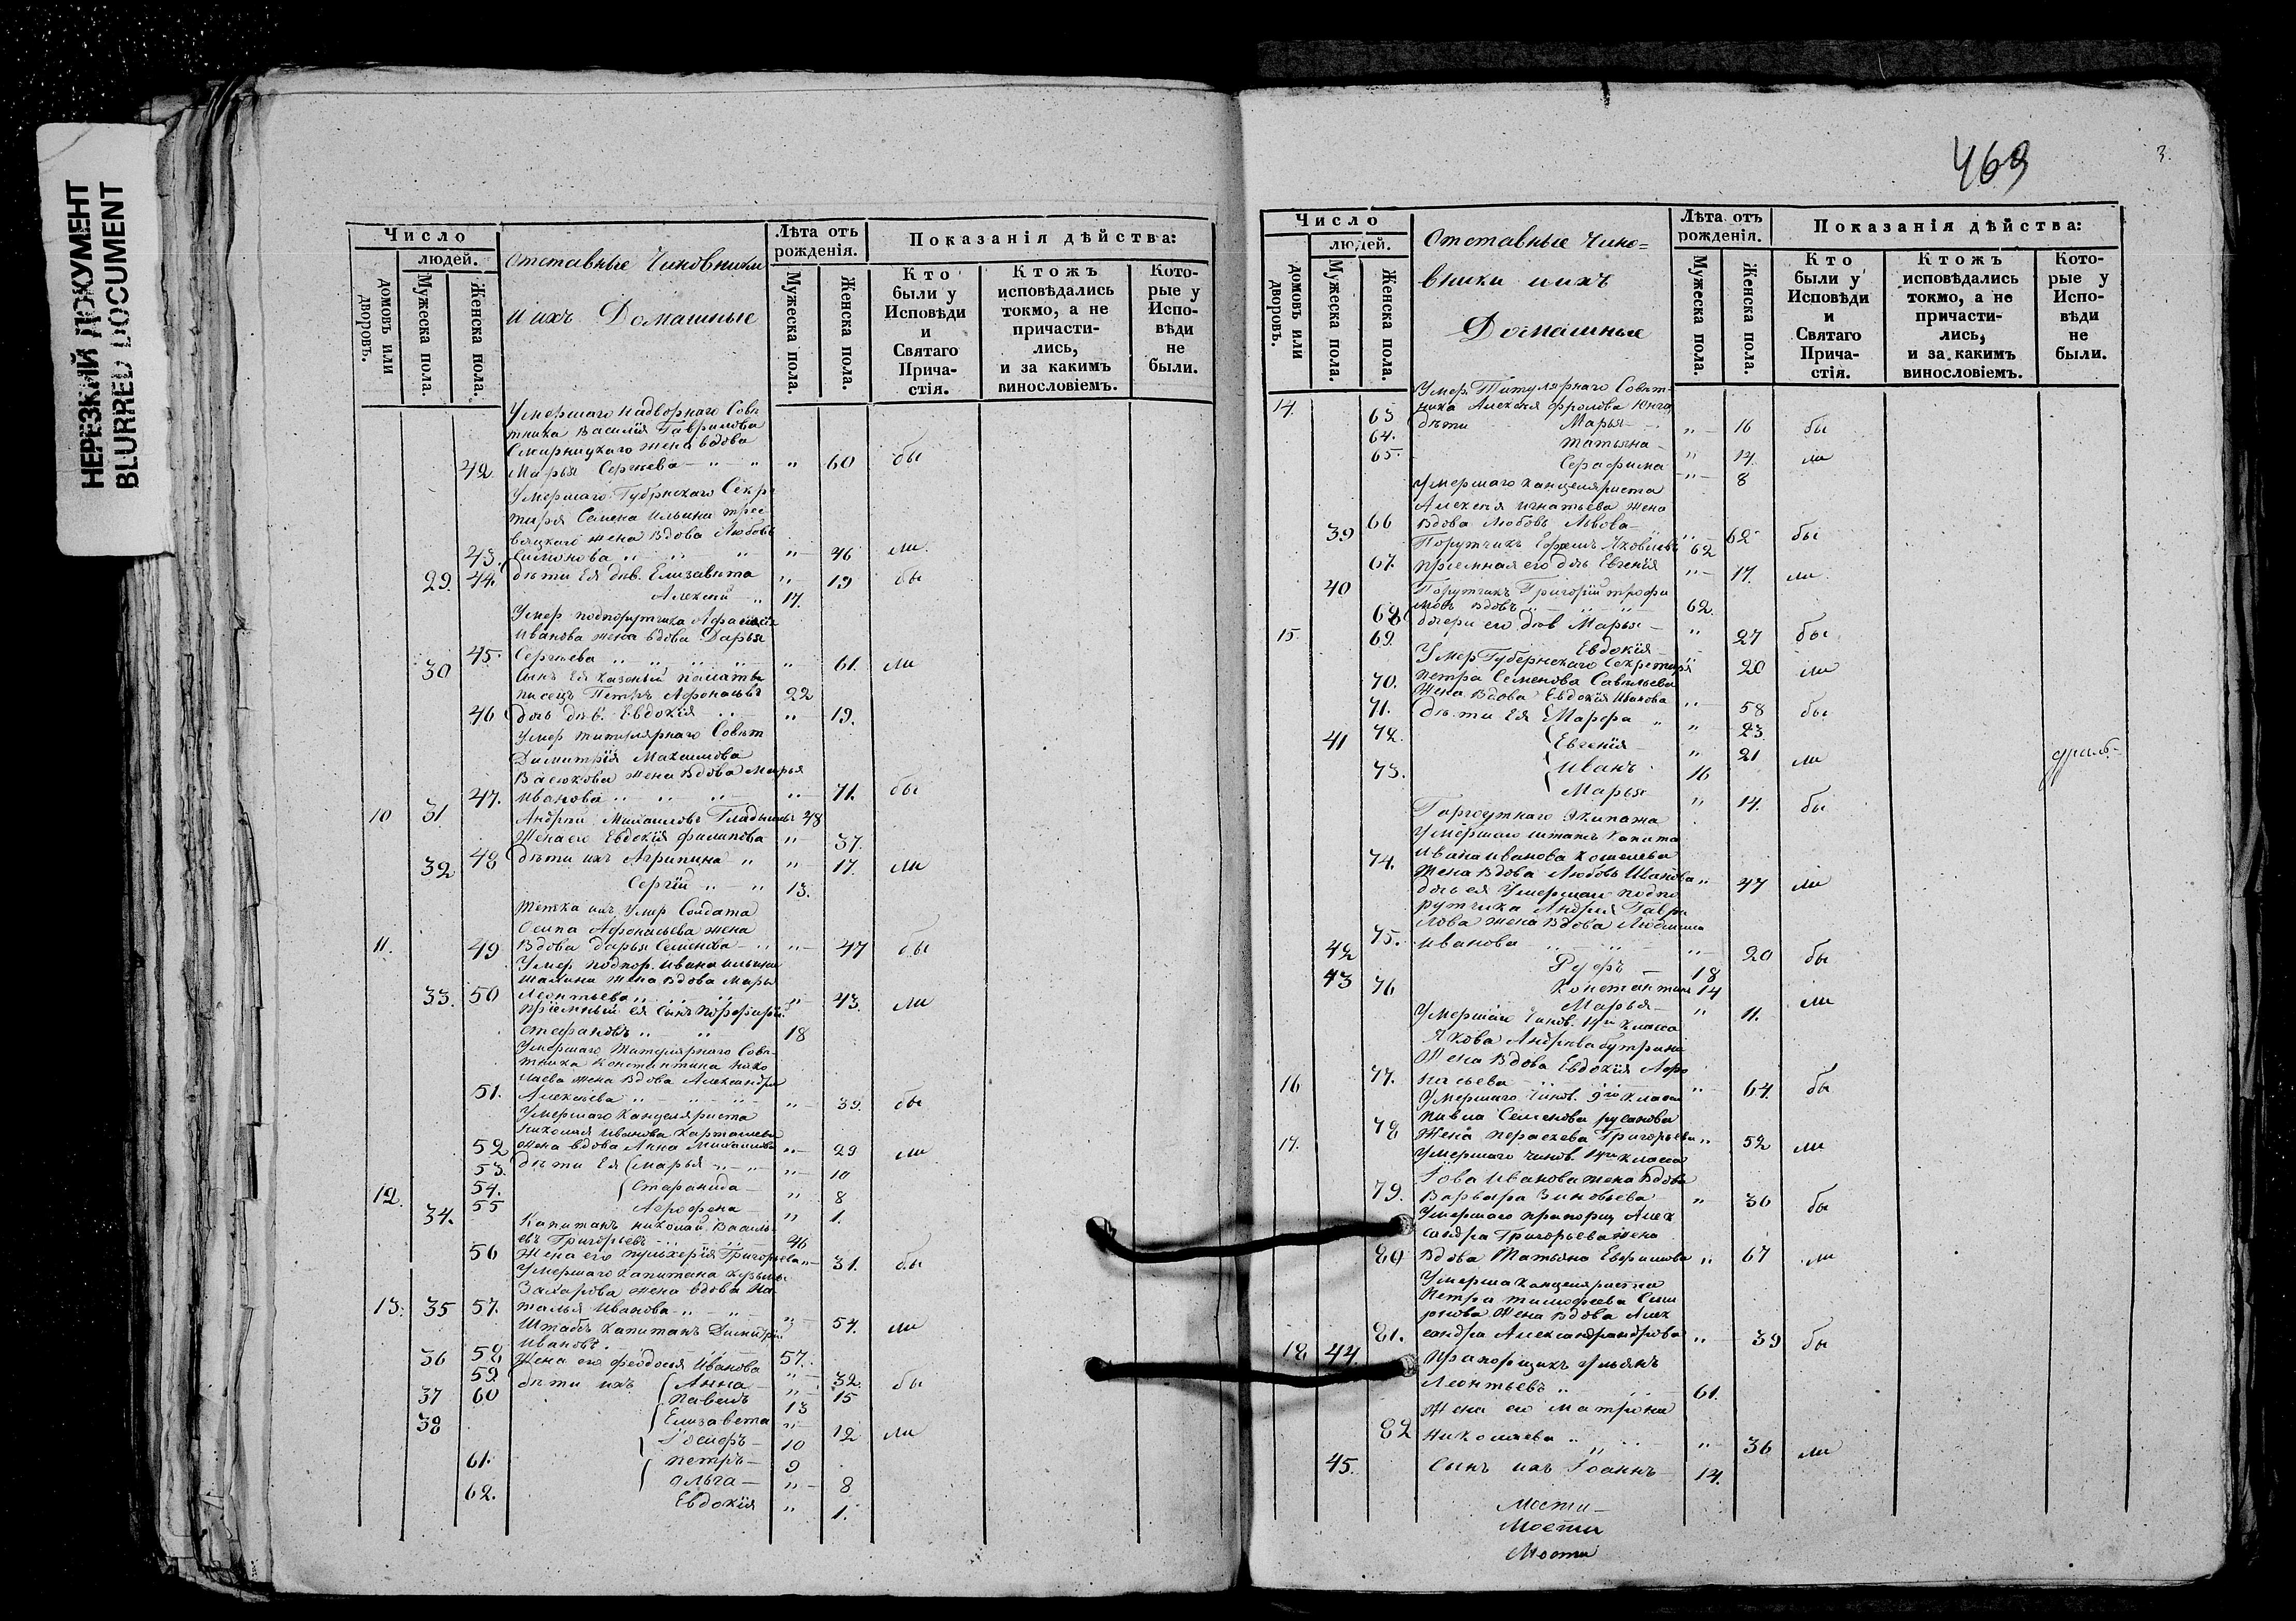 НЕРЕЗКИЙ ДОКУМЕНТ
BLURRED DOCUMENT
Число
людей.
домовъ или дворовъ.
Мужеска пола.
Женска пола.
Отставные Чиновники
и ихъ Домашные
Лѣта отъ рожденія.
Мужеска пола.
Женска пола.
Показанія дѣйства:
Кто были у Исповѣди и Святаго Прича-стія.
Ктожъ исповѣдались токмо, а не причасти-лись, и за какимъ винословіемъ.
Кото-рые у Испо-вѣди не были.
Умершаго Надворнаго Совѣ
тника Василія Гаврилова
жена вдова
42. Марья Сергѣева „ 60 бы
Умершаго Губрнскаго Секре
таря Семена Ильина
жена вдова Любовь
43. Симонова „ 46 ли
29. 44. дѣти Ея дѣв. Елизавета „ 19 бы
Алексѣй 17.
Умер подпорутчика
Иванова жена вдова Дарья
45. Сергѣева „ 61. ли
30 Сынъ Ея казеной палаты
писецъ Петръ Афонасьевъ 22
46 дочь дѣв. Евдокія „ 19.
Умер титулярнаго Совѣт
Димитрія Махаилова
жена вдова Марья
47. Иванова „ 71. бы
10 31. Андрей Михаиловъ 48
Жена его Евдокія Филипова „ 37.
48 дѣти ихъ Агрипина „ 17. ли
32 Сергій 13.
Тетка ихъ Умер Солдата
Осипа Афонасьева жена
11. 49 Вдова Дарья Семенова „ 47 бы
Умер подпор. Ивана Ильина
жена Вдова Марья
33. 50 Леонтьева „ 43. ли
приемный ея сынъ Порфирій
Стефановъ 18
Умершаго Титулярнаго Совѣ-
тника Константина Нико
лаева жена Вдова Александра
51. Алексѣева „ 39. бы
Умершаго Канцеляриста
Николая Иванова Карташева
52 жена вдова Анна Михаилова „ 29 ли
53. дѣти Ея Марья „ 10
54. Степанида „ 8
12. 55 Агрофена „ 1.
34. Капитанъ Николай Василь-
евъ Григорьевъ 46
56 Жена его Пульхерія Григорьева „ 31. бы
Умершаго Капитана Кузьмы
Захарова жена вдова На
13. 35 57. талья Иванова „ 54. ли
Штабсъ Капитанъ Димитрій
Ивановъ. 57.
36 58 Жена его Феодосія Иванова „ 32
59. дѣти ихъ Анна „ 15 бы
37 60 Павелъ 13
38 Елизавета „ 12 ли
Іосифъ 10
61. Петръ 9
Ольга „ 8
62. Евдокія „ 1.
469
3.
Число
людей.
домовъ или дворовъ.
Мужеска пола.
Женска пола.
Отставные Чино=
вники и ихъ
Домашные
Лѣта отъ рожденія.
Мужеска пола.
Женска пола.
Показанія дѣйства:
Кто были у Исповѣди и Святаго Прича-стія.
Ктожъ исповѣдались токмо, а не причасти-лись, и за какимъ винословіемъ.
Кото-рые у Испо-вѣди не были.
Умер. Титулярнаго Совѣт-
14. ника Алексѣя Фролова
63 дѣти Марья „ 16 бы
64. Татьяна „ 14. ли
65. Серафима „ 8
Умершаго Канцеляриста
Алексѣя Игнатьева жена
66 Вдова Любовь Львова „ 62 бы
39 Порутчикъ Ефремъ Яковлевъ 62
67. приемная его дочь Евгенія „ 17. ли
40 Порутчикъ Григорій Трофи
мовъ вдовъ 62.
68 дочери его дѣв Марья „ 27 бы
15. 69. Евдокія 20 ли
Умер Губернскаго Секретаря
Петра Семенова Савельева
70. Жена Вдова Евдокія Иванова „ 58 бы
71. дѣти Ея Марфа „ 23
72. Евгенія „ 21 ли
41 Иванъ 16
73. Марья „ 14. бы
Экипажа
Умершаго штапсъ Капита
Ивана Иванова Кошелева
74. Жена Вдова Любовь Иванова „ 47 ли
дочь ея Умершаго подпо
рутчика Андрея Гаври
лова жена Вдова
75. Иванова „ 20 бы
42 18
43 Константинъ 14
76 Марья „ 11. ли
Умершаго Чинов. 14го Класса
Якова Андрѣева
Жена Вдова Евдокія Афо
16 77. насьева „ 64 бы
Умершаго Чинов. 9го Класса
Павла Семенова Русанова
17. 78 Жена Параскева Григорьева „ 52 ли
Умершаго чинов. 14го Класса
Іова Иванова жена Вдова
79. Варвара Зиновьева „ 30 бы
Умершаго прапорщ Алек
сандра Григорьева жена
80 Вдова Татьяна Ефимова „ 67 ли
Умерша Канцеляриста
Петра Тимофеева
жена Вдова Алек
81. сандра „ 39 бы
18 44. Прапорщикъ Ульянъ
Леонтьевъ 61.
Жена его Матрона
82 Николаева „ 36 ли
45. Сынъ ихъ Іоаннъ 14.